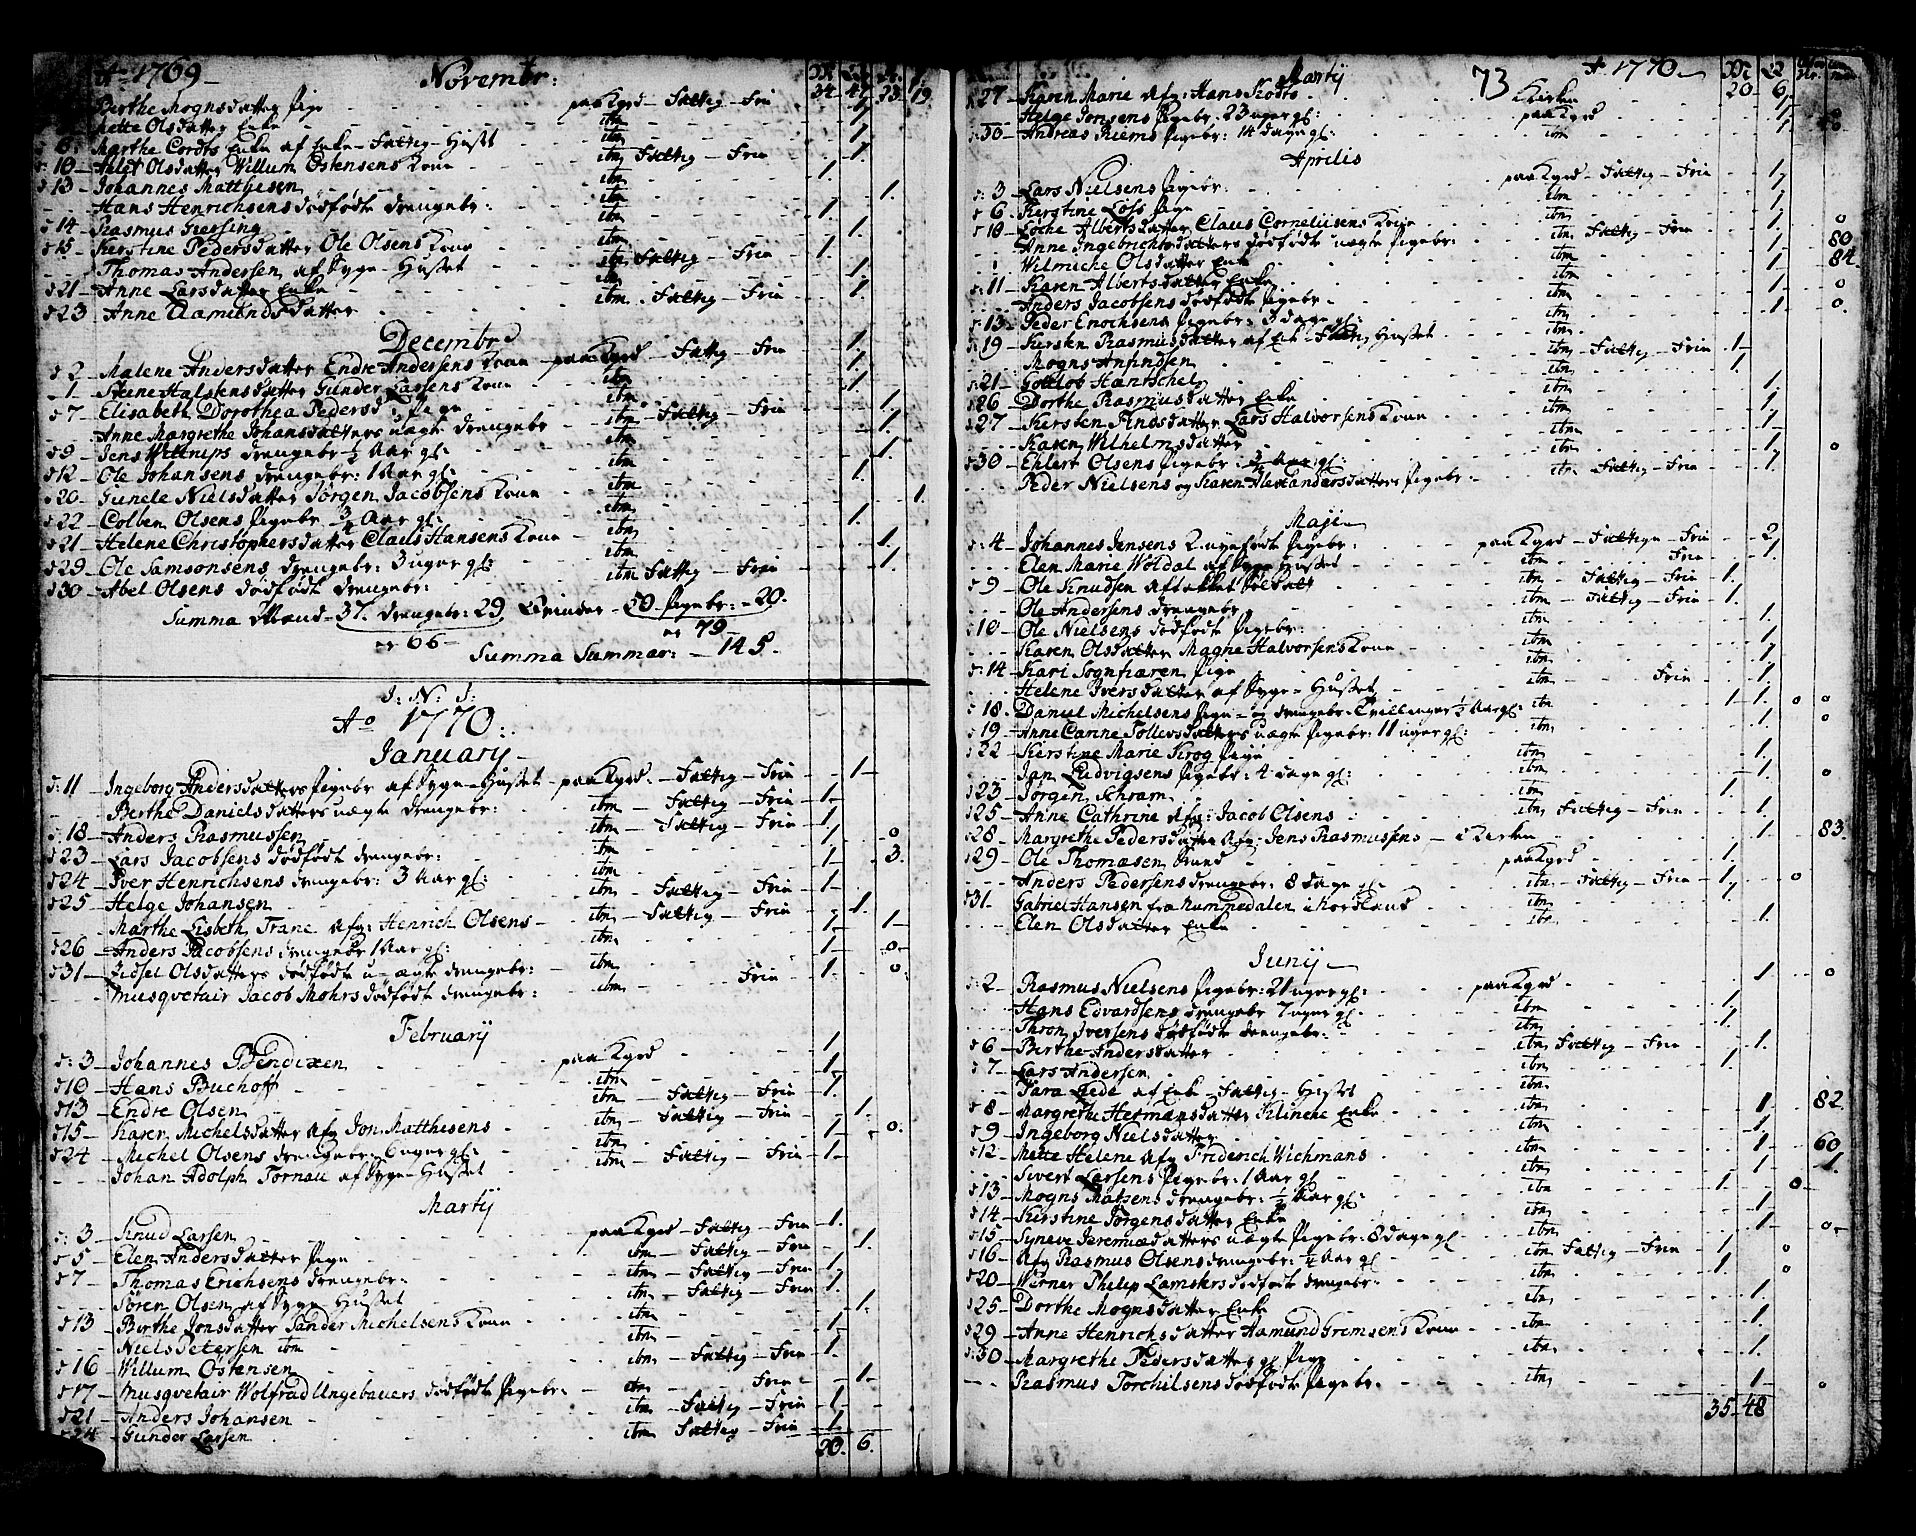 Ao 1769
Novembr:
34. 47. 23. 19
Berthe Mognsdatter Pige - paa Kgrd - Fattig - Frie - 1.
Mette Olsdatter Enke - itm - 1.
6. Marthe Cordts Enke af Enke-Fattig-Huset - itm - 1.
10 - Ahlet Olsdatter Willum Ostensens Kone - itm - Fattig - Frie - 1.
13 - Johannes Matthesen - itm - 1.
Hans Henrichsens dødfødte drengebr: - itm - 1.
14 - Rasmus Giersing - itm - 1.
15 - Kierstine Pedersdatter Ole Olsens Kone - itm - 1.
Thomas Andersen af Syge-Huset - itm - Fattig - Frie - 1.
21 - Anne Larsdatter Enke - itm - 1.
23 Anne Aamundsdatter - itm - Fattig - Frie - 1.
Decembr
2 - Malene Andersdatter Endre Andersens Kone - paa Kgrd - Fattig - Frie - 1.
Steene Halskensdatter Gunder Larsens Kone - itm - 1.
7 - Elisabeth Dorothea Pedersd: Pige - itm - 1.
Anne Margrethe Johansdatters uægte drengebr - itm - Fattig - Frie - 1.
9 - Jens Wittrups drengebr ½ Aar gl: - itm - 1.
12 - Ole Johansens drengebr: 1 Aar gl: - itm - 1.
20 - Gunele Nielsdatter Jørgen Jacobsens Kone - itm - 1.
22 - Colben Olsens Pigebr ¾ Aar gl: - itm - 1.
21 - Helene Christophersdatter Claus Hansens Kone - itm - 1.
29 - Ole Samsonsens drengebr: 3 uger gl: - itm - 1.
30 - Abel Olsens dødfødt drengebr: - itm Fattig - Frie - 1.
Summa Mand - 37. drengebr: 29. Qvinder - 50. Pigebr: - 20.
er 66 - er 79
Summa Summar: - 145.
J: N: J:
Ao 1770.
Januarij
11 - Ingeborg Andersdatters Pigebr af Syge-Huset - paa Kgrd. - Fattig - Frie - 1 -
Berthe Danielsdatters uægte drengebr: - itm - Fattig - Frie - 1.
18 - Anders Rasmussen - itm - Fattig - Frie - 1.
23 - Lars Jacobsens dødfødt drengebr: - itm - 1. 0
24 - Iver Henrichsens drengebr: 3 Aar gl: - itm - 1 - 3.
25 - Helge Johansen - itm - Fattig - Frie - 1 -
Marthe Lisbeth Trane Afg: Henrich Olsens - itm - Fattig - Frie - 1.
26 - Anders Jacobsens drengebr 1 Aar gl: - itm - 1. 1 -
31 - Zidsel Olsdatters dødfødt u-ægte drengebr: - itm - 1 - 0.
Musqvetair Jacob Mohrs dødfødt drengebr: - itm - Frie - 1. 0.
Februarij
3 - Johannes Bendixen - paa Kgrd - 1.
10 - Hans Buchoff - itm - 1.
13 - Endre Olsen - itm - Fattig - Frie - 1.
15 - Karen Michelsdatter Afg Jon Matthesens - itm - Fattig - Frie - 1.
24 - Michel Olsens drengebr: 6 uger gl: - itm - 1 - 0.
Johan Adolph Tornau af Syge-Huset - itm - Fattig - Frie - 1 -
Martij
3 - Knud Larsen - paa Kgrd - Fattig - Frie - 1.
5 - Elen Andersdatter Pige - itm - Fattig - Frie - 1.
7 - Thomas Erichsens drengebr. - itm - Fattig - Frie - 1.
Søren Olsen af Syge Huset - itm - Fattig - Frie 1.
13 - Birthe Jonsdatter Sander Michelsens Kone - itm - 1.
Niels Petersen itm - itm - 1.
16 - Willum Ostensen - itm - Fattig - Frie - 1.
17 - Musqvetair Wolfrad Ungebauers dødfødte Pigebr: - itm - Frie - 1 -
21 - Anders Johansen - itm - Fattig - Frie - 1.
24 - Gunder Larsen - itm Fattig - Frie - 1.
20. 6.
Martij 73 Ao 1770
20 - 6
27 - Karen Marie Afg: Hans Kodts - Kirken - 1.
Helge Jonsens Pigebr. 23 uger gl: - paa Kgrd - 1.
30 - Andreas Riems Pigebr: 14 dage gl: - itm - 1
Aprilis
3 - Lars Nielsens Pigebr. - paa Kgrd - Fattig - Frie - 1.
6 - Kierstine Lofs Pige - itm - 1.
10 - Loche Albertsdatter Claus Corneliusens Kone - itm - 1.
Anne Ingebrichtsdatters dødfødt uægte Pigebr: - itm Fattig - Frie - 1. 0
Wilmiche Olsdatter Enke - itm - 1. 80
11 - Karen Albertsdatter Enke - itm - 1. 84.
Anders Jacobsens dødfødt Pigebr - itm - 1. 0
13 - Peder Enochsens Pigebr: 3 dage gl: - itm - 1. 0.
19 - Kiersten Rasmusdatter af Enke-Fattig Huset - itm
Mogns Anfindsen - itm - Fattig - Frie - 1 -
21 - Gottlob Hantschel - itm - 1.
26 - Dorthe Rasmusdatter Enke - itm - 1.
27 - Kiersten Findsdatter Lars Halvorsens Kone - itm - 1.
Karen Wilhelmsdatter - itm - 1.
30 - Ehlert Olsens Pigebr: ¾ Aar gl: - itm - 1. 0
Peder Nielsens og Karen Alexandersdatters Pigebr. - itm Fattig - Frie - 1.
Maji
4 - Johannes Jensens 2. nyefødte Pigebr: - paa Kgrd - Fattige - Frie - 2.
Elen Marie Woldal af Syge Huset - itm - Frie - 1.
9 - Ole Knudsen - itm - Fattig - Frie - 1.
Ole Andersens drengebr. - itm - Fattig - Frie - 1.
10 - Ole Nielsens dødfødt Pigebr. - itm - 1.
Karen Olsdatter Magne Halvorsens Kone - itm - 1.
14 - Kari Sognfiæren Pige - itm - 1.
Helene Iversdatter af Syge-Huset - itm - Frie - 1.
18. Daniel Michelsens Pige- og drengebr. Tvillinger ½ Aar gl: - itm - 1. 1. 0 0
19 - Anne Carine Tollevsdatters uægte Pigebr: 11 uger gl: - itm - 1. 0
22 - Kierstine Marie Krog Pige - itm - 1.
Jan Ludvigsens Pigebr: 4 dage gl: - itm - 1. 0
23 - Jørgen Schram - itm - 1.
25 - Anne Cathrine Afg: Jacob Olsens - itm Fattig - Frie - 1.
28 - Margrethe Pedersdatter Afg. Jens Rasmussens - i Kirken - 1. 83.
29 - Ole Thomæsen - paa Kgrd - 1.
Anders Pedersens drengebr: 8 dage gl. - itm - Fattig - Frie - 1. 0
31. Gabriel Hansen fra Nummedalen i Nordland - itm
Elen Olsdatter Enke - itm - 1.
Junij
2 - Rasmus Nielsens Pigebr: 21 uger gl: - paa Kgrd - 1 0
Hans Edvardsens drengebr 7 uger gl. - itm - 1.
Thron Iversens dødfødt drengebr: - itm - 1.
6 - Birthe Andersdatter - itm Fattig - Frie - 1.
7 - Lars Andersen - itm - 1.
Tara Lede af Enke-Fattig-Huset - itm
8 - Margrethe Hermansdatter Klinche Enke - itm - 1 82.
9 - Ingeborg Nielsdatter - itm - 1.
12 - Mette Helene Afg Friderich Wichmans - itm - 1 60
Sivert Larsens Pigebr: 1 Aar gl - itm - 1 1.
13 - Mogns Matsens drengebr: ½ Aar gl: - itm - 1. 0
14 - Kierstine Jørgensdatter Enke - itm - 1.
15 - Syneve Jeremiædatters uægte Pigebr: 8 dage gl - itm - 1 - 0.
16 - Afg Rasmus Olsens drengebr: ¼ Aar gl - itm Fattig - Frie - 1. 0
20 - Werner Philip Lamshers dødfødt drengebr: - itm - 1. 0
25 - Dorthe Mognsdatter Enke - itm - 1.
29 - Anne Henrichsdatter Aamund Gremsens Kone - itm - 1.
30 - Margrethe Pedersdatter gl Pige - itm - 1.
Rasmus Torchilsens dødfødt Pigebr. - itm - 1 - 0
35 - 48